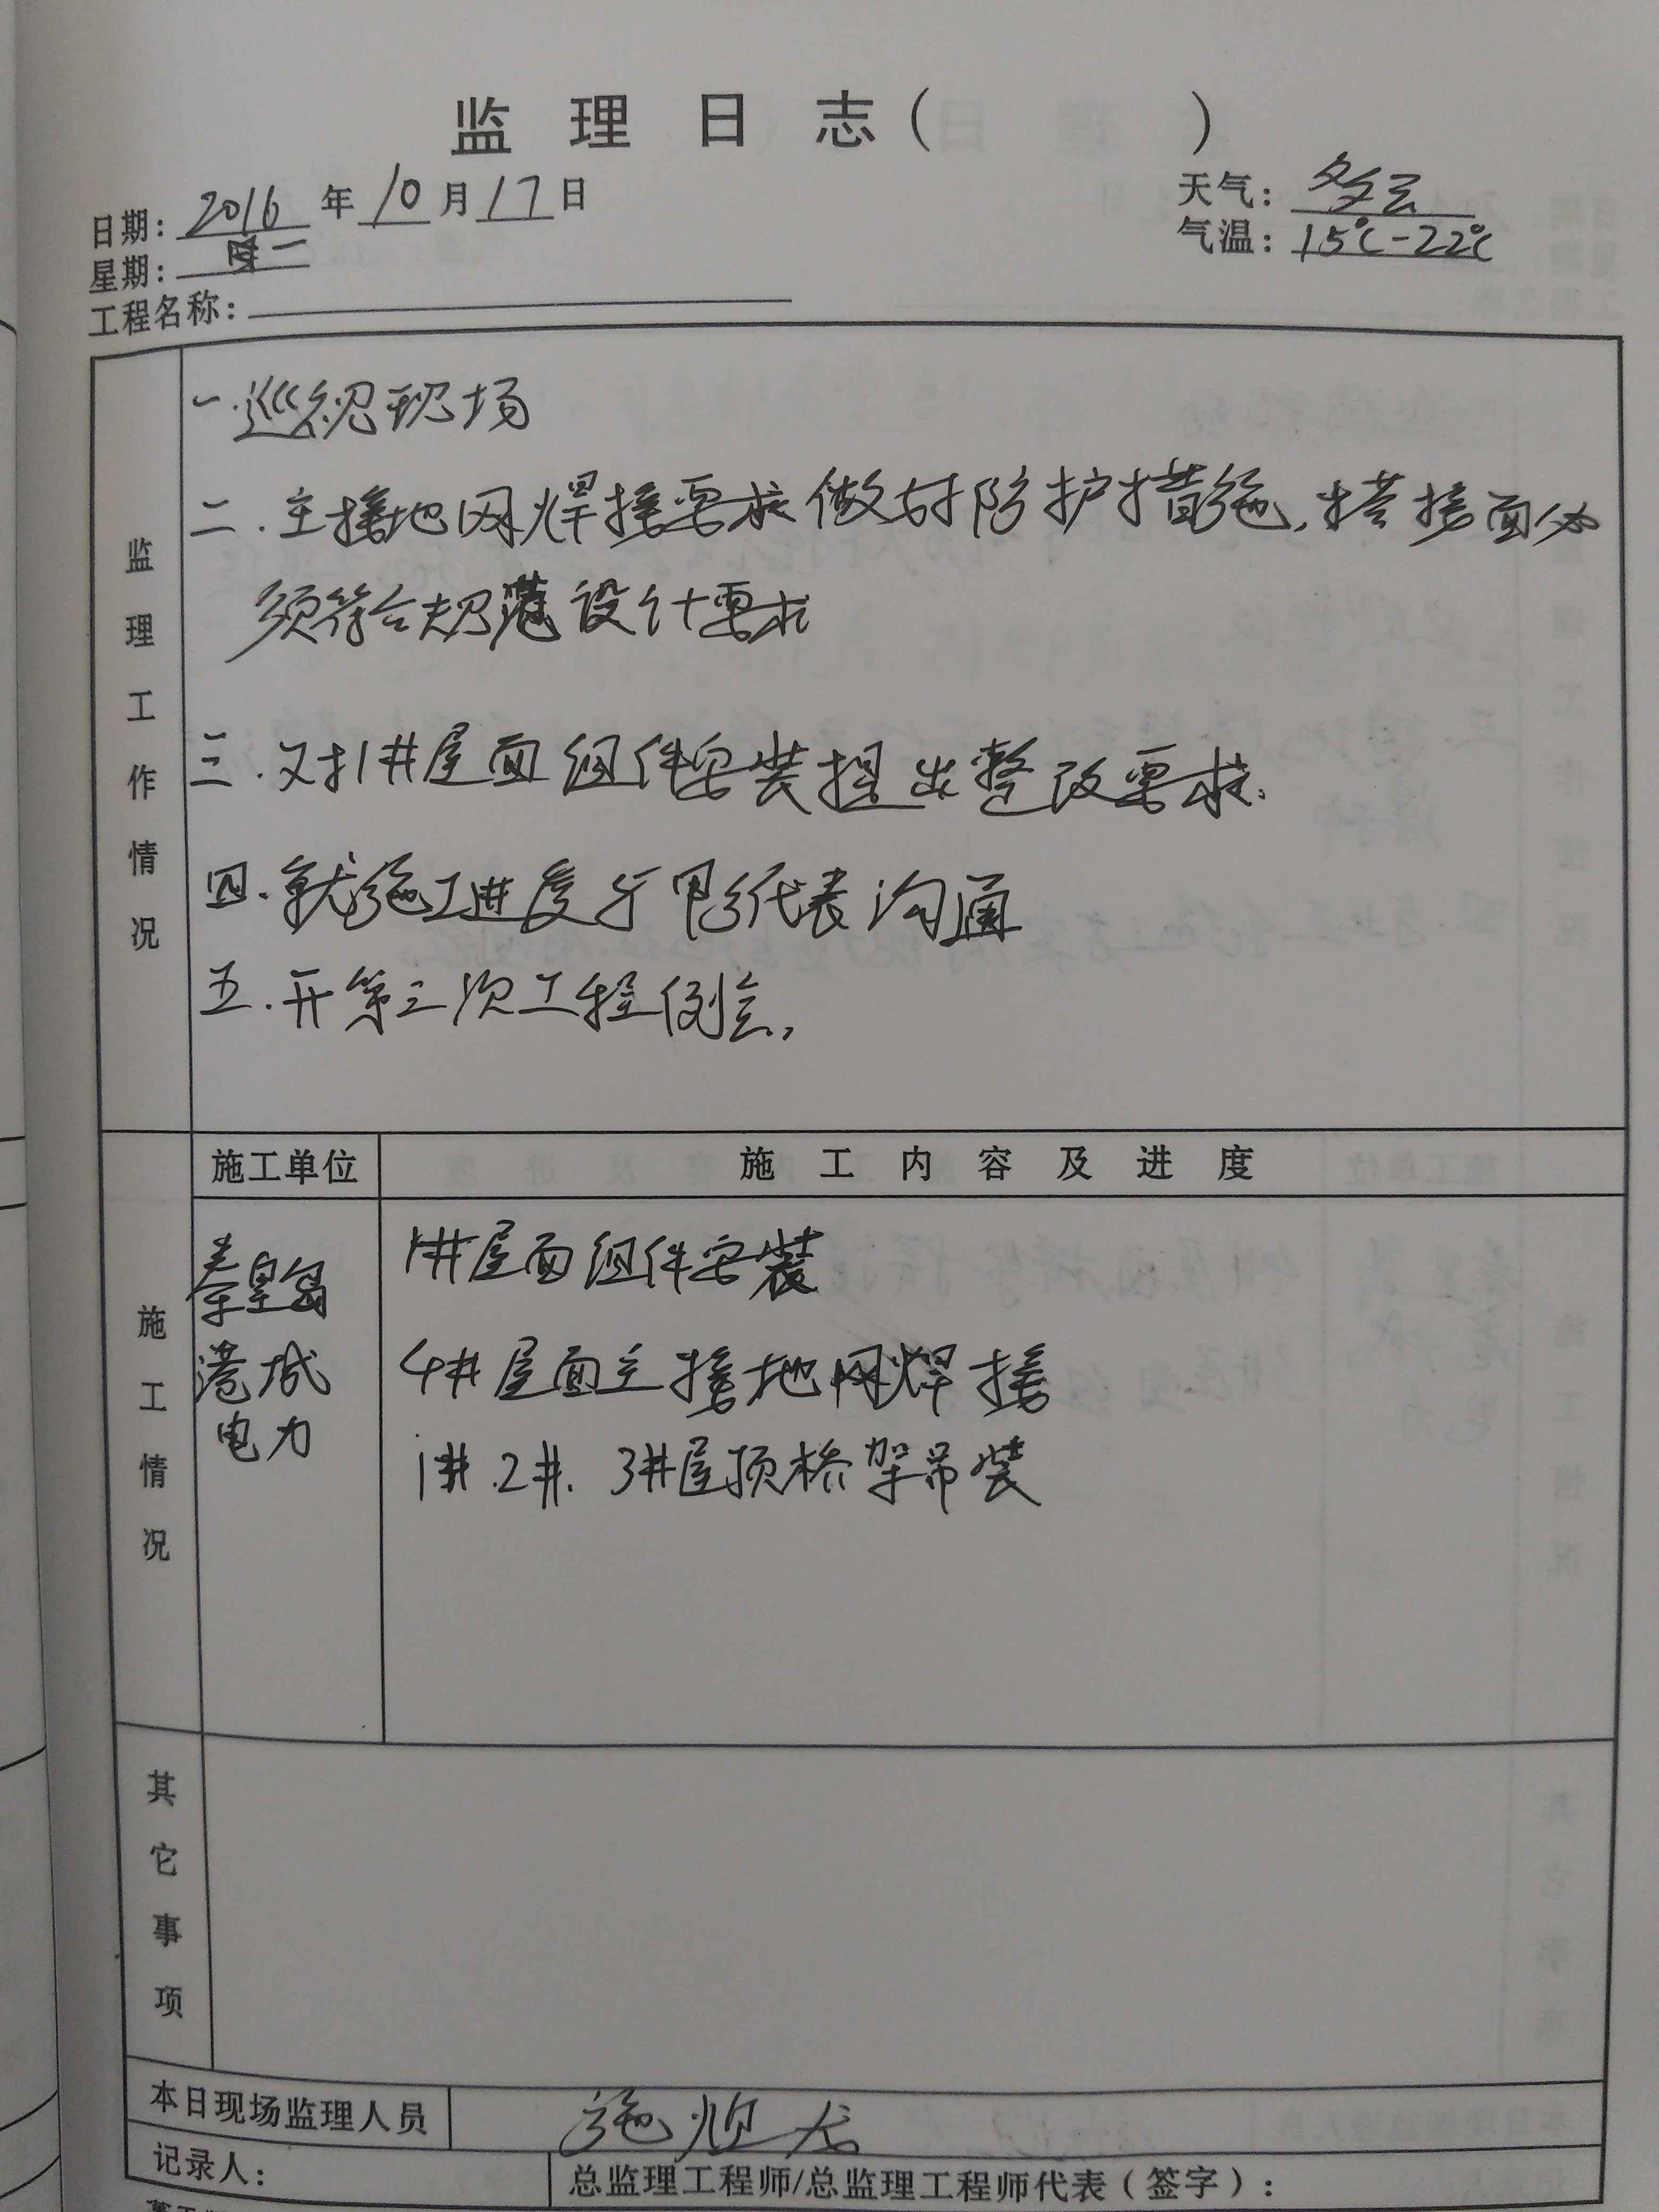 监理日志( )
日期: 2016 年 10 月 17 日
天气: 多云
星期: 一
气温: 15℃-22℃
工程名称:
监理工作情况
一.巡视现场
二.主接地网焊接要求做好防护措施,搭接面必
须符合规范设计要求
三.对1#屋面组件安装提出整改要求.
四.就施工进度与甲方代表沟通
五.开第三次工程例会.
施工情况
施工单位
施工内容及进度
秦皇岛
港城
电力
1#屋面组件安装
4#屋面主接地网焊接
1#.2#.3#屋顶桥架吊装
其它事项
本日现场监理人员
施
记录人:
总监理工程师/总监理工程师代表(签字):